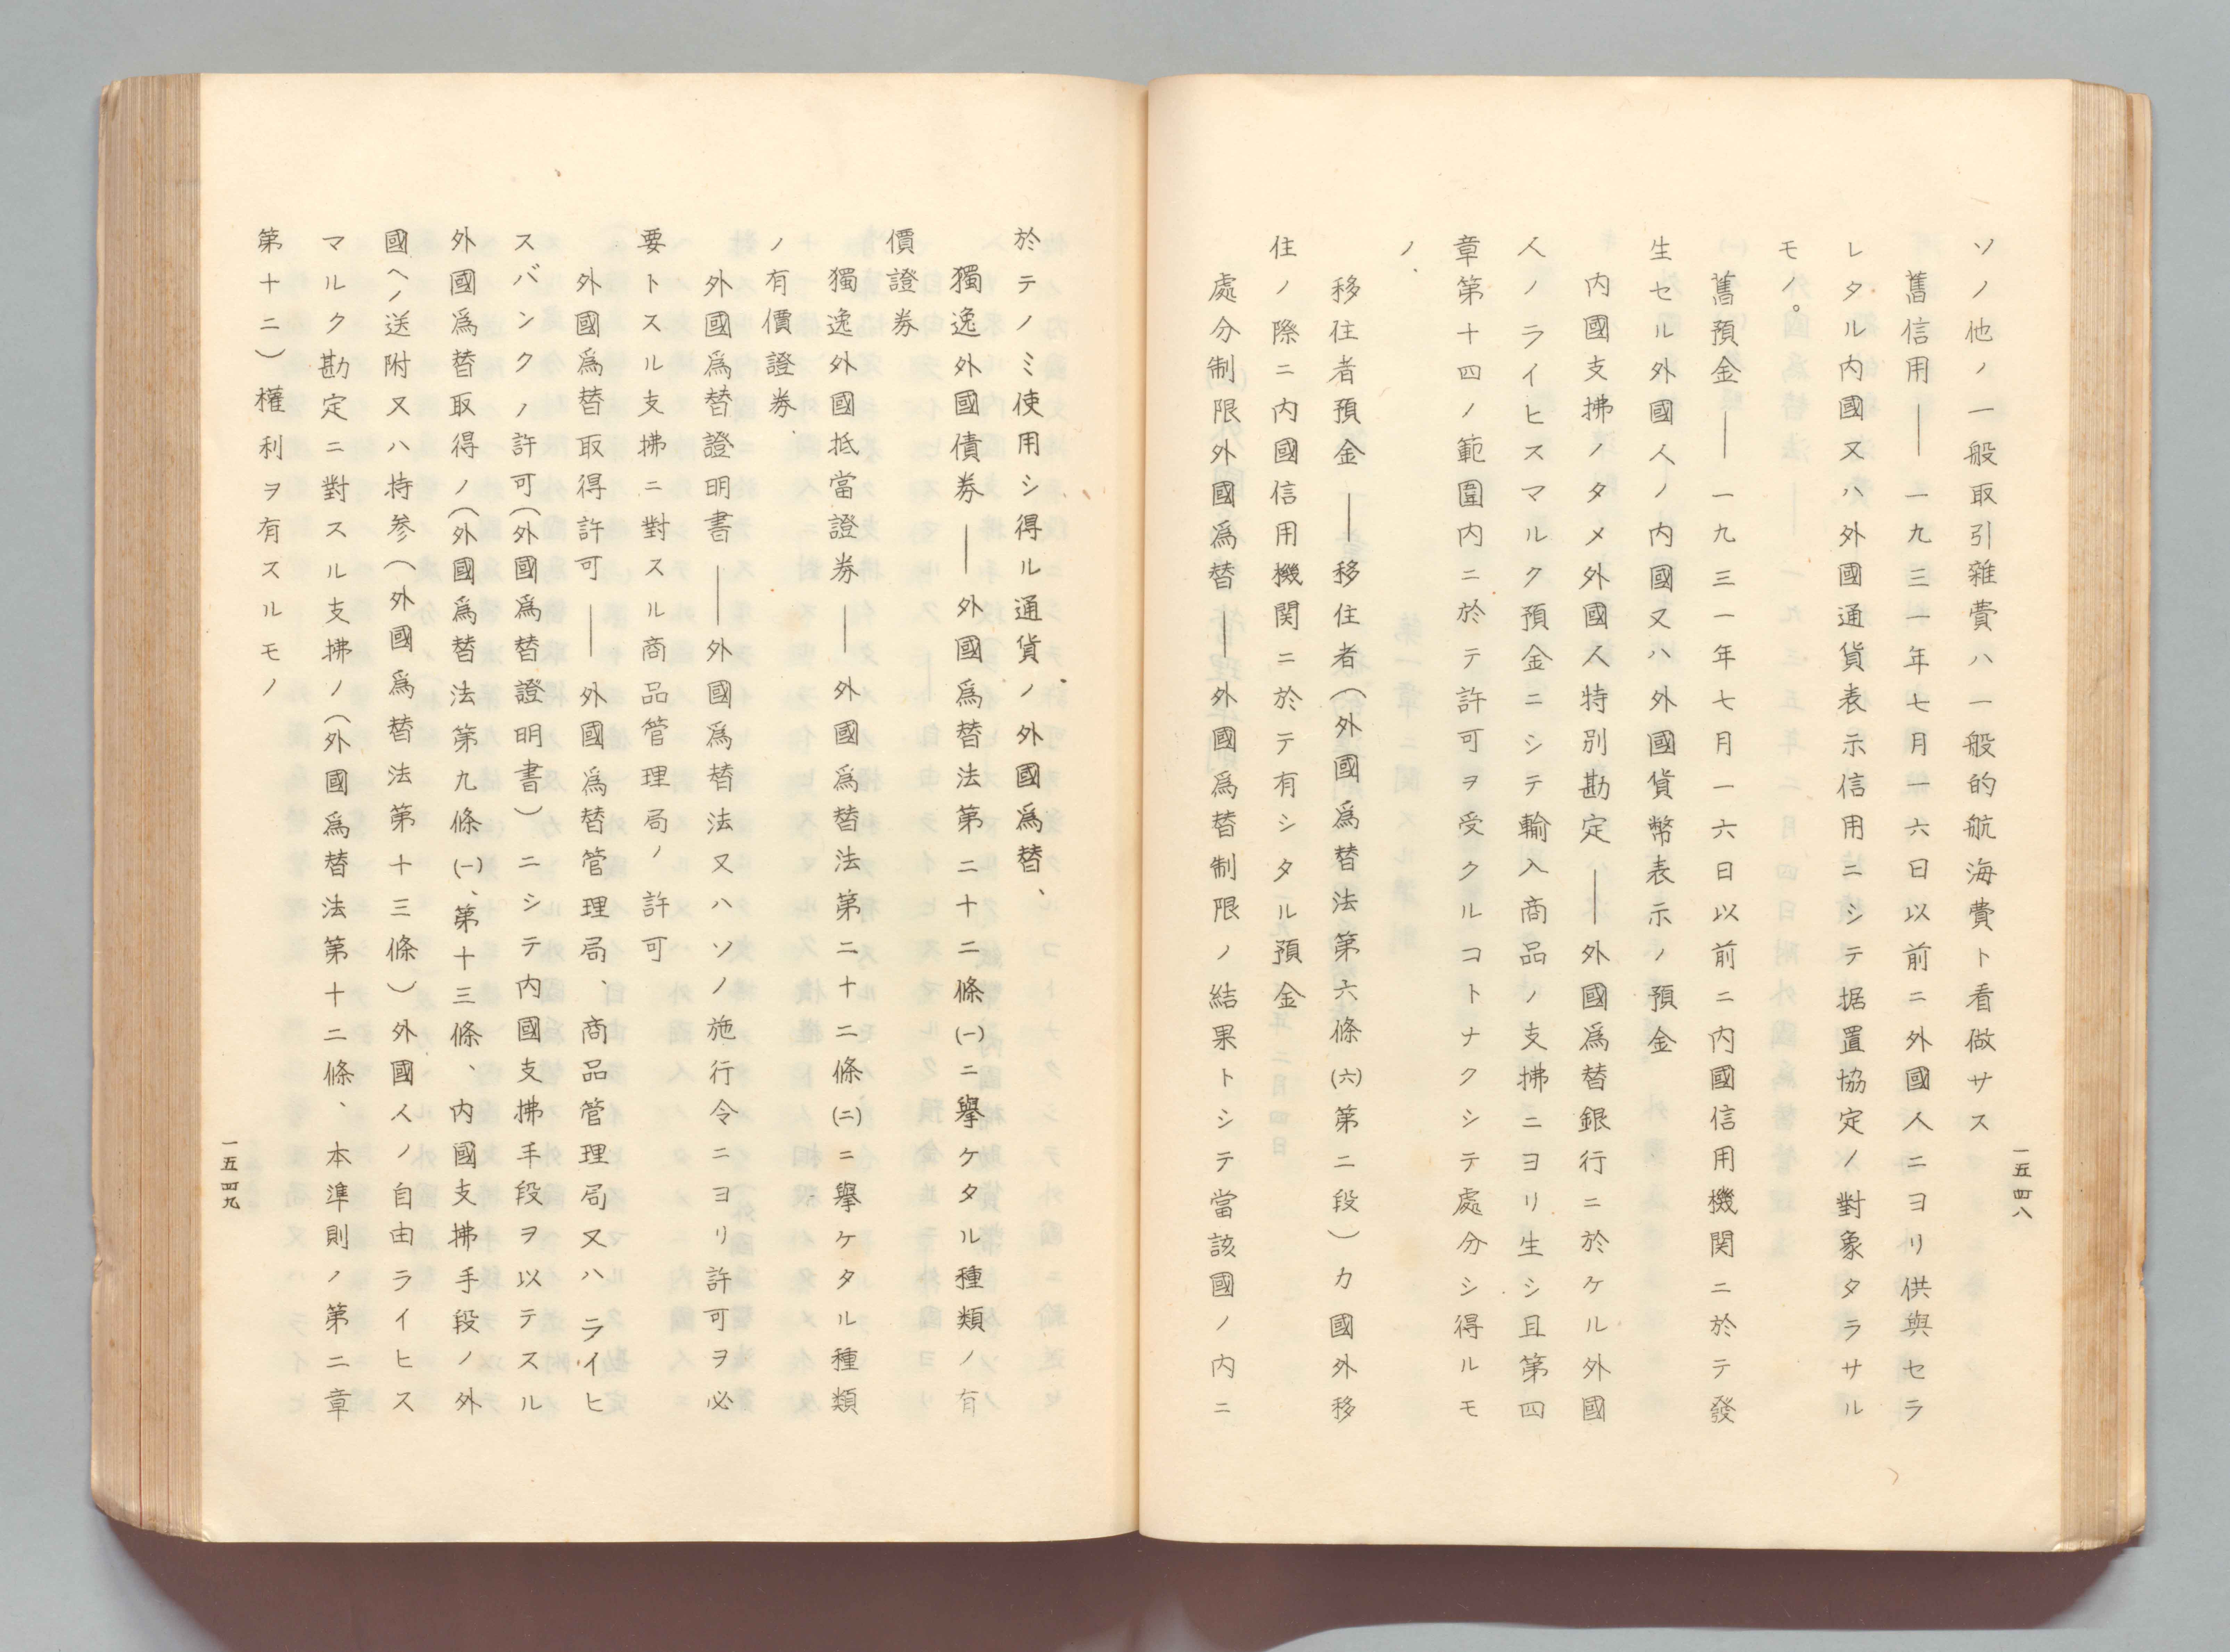 ソノ他ノ一般取引雑費ハ一般的航海費ト看做サス
舊信用――一九三一年七月一六日以前ニ外國人ニヨリ供與セラ
レタル内國又ハ外國通貨表示信用ニシテ据置協定ノ對象タラサル
モノ。
舊預金――一九三一年七月一六日以前ニ内國信用機関ニ於テ發
生セル外國人ノ内國又ハ外國貨幣表示ノ預金
内國支拂ノタメ外國人特別勘定――外國爲替銀行ニ於ケル外國
人ノライヒスマルク預金ニシテ輸入商品ノ支拂ニヨリ生シ且第四
章第十四ノ範圍内ニ於テ許可ヲ受クルコトナクシテ處分シ得ルモ
ノ、
移住者預金――移住者(外國爲替法第六條(六)第二段)カ國外移
住ノ際ニ内國信用機関ニ於テ有シタル預金
處分制限外國爲替――外國爲替制限ノ結果トシテ當該國ノ内ニ
一五四八
於テノミ使用シ得ル通貨ノ外國爲替、
獨逸外國債券――外國爲替法第二十二條(一)ニ擧ケタル種類ノ有
價證券
獨逸外國抵當證券――外國爲替法第二十二條(二)ニ擧ケタル種類
ノ有價證券、
外國爲替證明書――外國爲替法又ハソノ施行令ニヨリ許可ヲ必
要トスル支拂ニ對スル商品管理局ノ許可
外國爲替取得許可――外國爲替管理局、商品管理局又ハライヒ
スバンクノ許可(外國爲替證明書)ニシテ内國支拂手段ヲ以テスル
外國爲替取得ノ(外國爲替法第九條(一)、第十三條、内國支拂手段ノ外
國ヘノ送附又ハ持参(外國爲替法第十三條)外國人ノ自由ライヒス
マルク勘定ニ對スル支拂ノ(外國爲替法第十二條、本準則ノ第二章
第十二)權利ヲ有スルモノ
一五四九